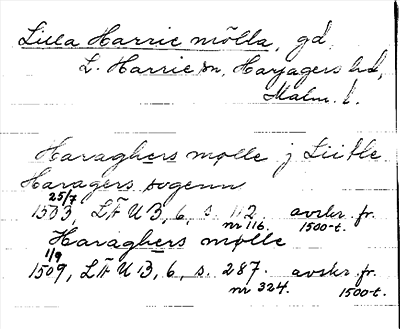 Lilla Harrie mölla, gd.
L. Harrie sn, Harjagers hd,
Malm. l.
Haraghers mølle j Liitle
Haragers sogenn
25/7
1503, LÄUB, 6, s. 112. avskr. fr.
nr 116. 1500-t.
Haraghers mølle
1/9
1509, LÄUB, 6, s. 287. avskr. fr.
nr 324. 1500-t.